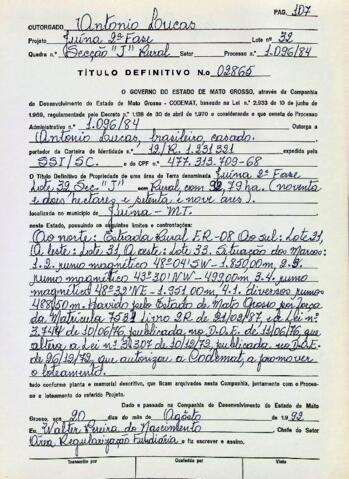 PAG. 107
OUTORGADO Antonio Lucas
Projeto Juina 2ª Fase Lote nº 32
Quadra n.º Secção "J" Rural Setor Processo n.º 1.096/84
TÍTULO DEFINITIVO N.o 02865
O GOVERNO DO ESTADO DE MATO GROSSO, através da Companhia
de Desenvolvimento do Estado de Mato Grosso - CODEMAT, baseado na Lei n.º 2.933 de 10 de junho de
1.969, regulamentada pelo Decreto n.º 1.138 de 30 de abril de 1970 e considerando o que consta do Processo
Administrativo n.º 1.096/84 Outorga a
Antonio Lucas, brasileiro, casado.
portador da Carteira de Identidade n.º 12/R. 1.231.321 expedida pela
SSI/SC. e do CPF n.º 477.313.709-68
O Título Definitivo de Propriedade de uma área de Terra denominada Juina 2ª Fase
Lote 32 Sec. "J" Rural, com 92,79 ha. (noventa
e dois hectares e setenta e nove ares).
localizada no município de Juina - MT.
neste Estado, possuindo os seguintes limites e confrontações:
Ao norte: Estrada Rural ER-08 Ao sul: Lote 31,
A leste: Lote 31, A oeste: Lote 33. Situação dos Marcos:
1.2. rumo magnético 48°04'SW - 1.850,00m, 2.3
rumo magnético 43°30'NW - 499,00m. 3.4 rumo
magnético 48°23'NE - 1.951,00m 4.1. diversos rumos
488,50 m. Havido pelo Estado de Mato Grosso por força
da Matricula 7531 Livro 2R de 21/09/87, e a Lei nº
3.744 de 10/06/76, publicada, no D.O.E. de 11/06/76 que
altera a Lei nº 3.307 de 10/12/72, publicada, no D.O.E.
de 26/12/72 que autorizou a Codemat, a promover
o loteamento.
tudo conforme planta e memorial descritivo, que ficam arquivados nesta Companhia, juntamente com o Proces-
so e loteamento do referido Projeto.
Dado e passado na Companhia de Desenvolvimento do Estado de Mato
Grosso, aos 20 dias do mês de Agosto de 1.992
Eu, Walter Pereira do Nascimento, Chefe do Setor
Área Regularização Fundiária o fiz escrever e assino.
Transcrito por Conferido por Visto